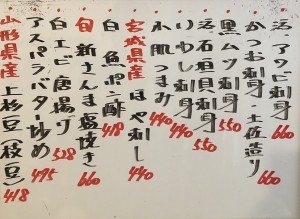 活アワビ刺身 660
かつお刺身・土佐造り
黒ムツ刺身 550
活石垣貝刺身 550
いわし刺身 440
小肌つまみ 440
宮城県産 ほや刺し 440
白魚ポン酢 418
旬 新さんま塩焼き 660
白エビ唐揚げ 528
アスパラバター炒め 495
山形県産 上杉豆(枝豆) 418